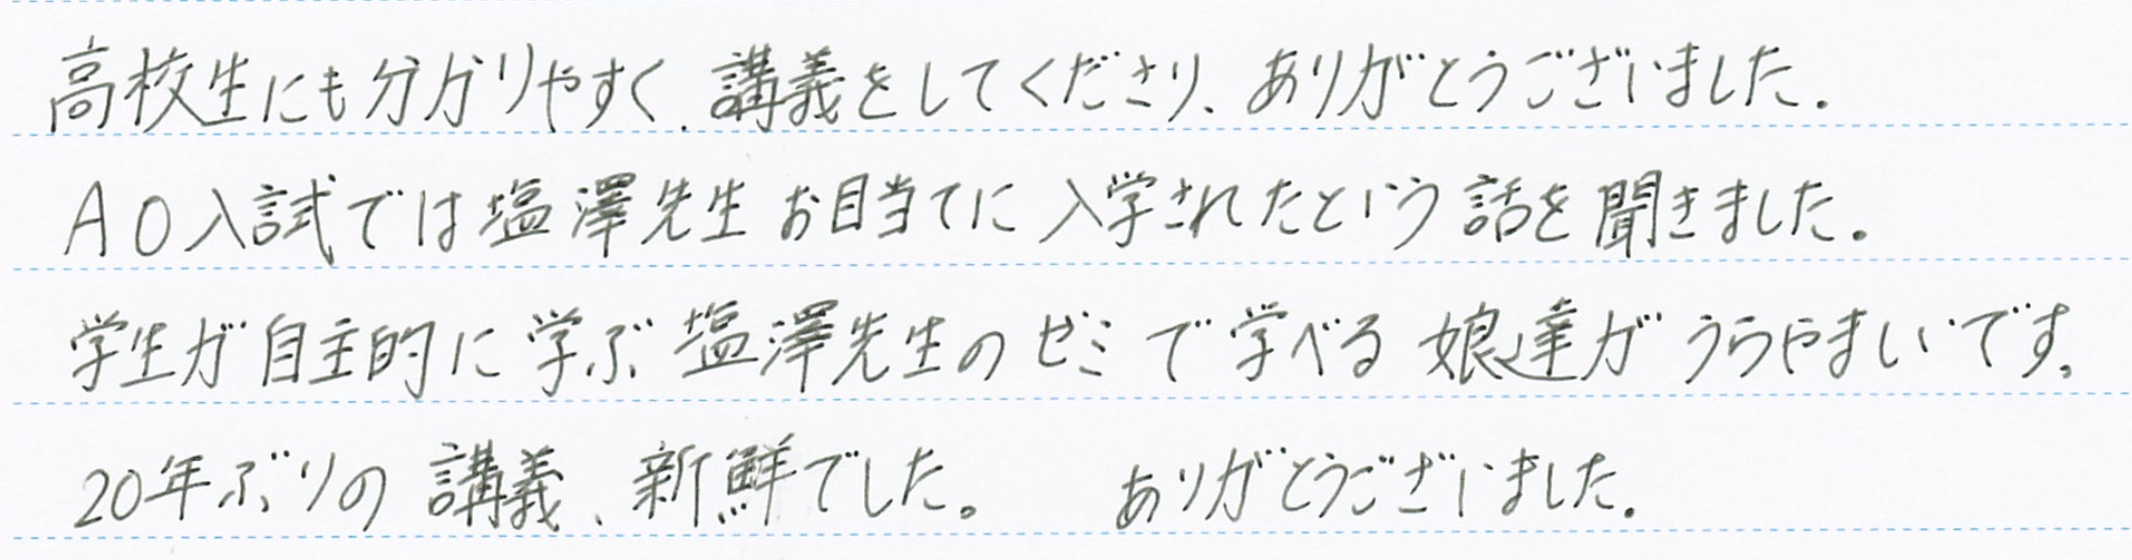 高校生にも分かりやすく、講義をしてくださり、ありがとうございました。
AO入試では塩澤先生お目当てに入学されたという話を聞きました。
学生が自主的に学ぶ塩澤先生のゼミで学べる娘達がうらやまいです。
20年ぶりの講義、新鮮でした。 ありがとうございました。